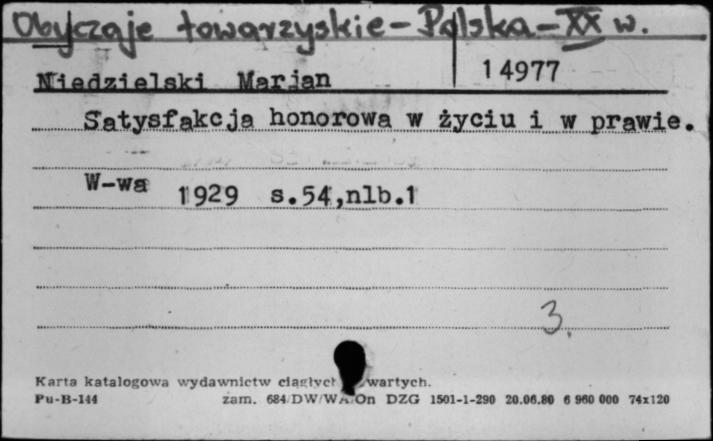 Obyczaje towarzyskie - Polska - XX w.
Niedzielski Marjan 14977
Satysfakcja honorowa w życiu i w prawie.
W-wa 1929 s.54,nlb.1
3.
Karta katalogowa wydawnictw ciągłych wartych.
Pu-B-144 zam. 684/DW/WA/On DZG 1501-1-290 20.06.80 6 960 000 74x120